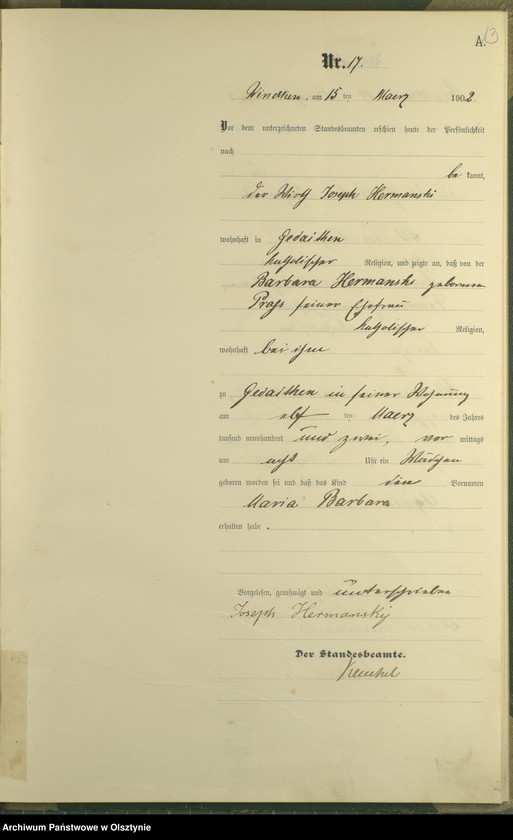 A. 13
Nr. 17.
Windtken, am 15 ten Maerz 1902.
Vor dem unterzeichneten Standesbeamten erschien heute der Persönlichkeit
nach
be kannt,
der Wirth Joseph Hermanski
wohnhaft in Gedaithen
katholischer Religion, und zeigte an, daß von der
Barbara Hermanski geborenen
seiner Ehefrau
katholischer Religion,
wohnhaft bei ihm
zu Gedaithen in seiner Wohnung
am elf ten Maerz des Jahres
tausend neunhundert und zwei, vor mittags
um acht Uhr ein Mädchen
geboren worden sei und daß das Kind die Vornamen
Maria Barbara
erhalten habe.
Vorgelesen, genehmigt und unterschrieben
Joseph Hermanski
Der Standesbeamte.
Archiwum Państwowe w Olsztynie